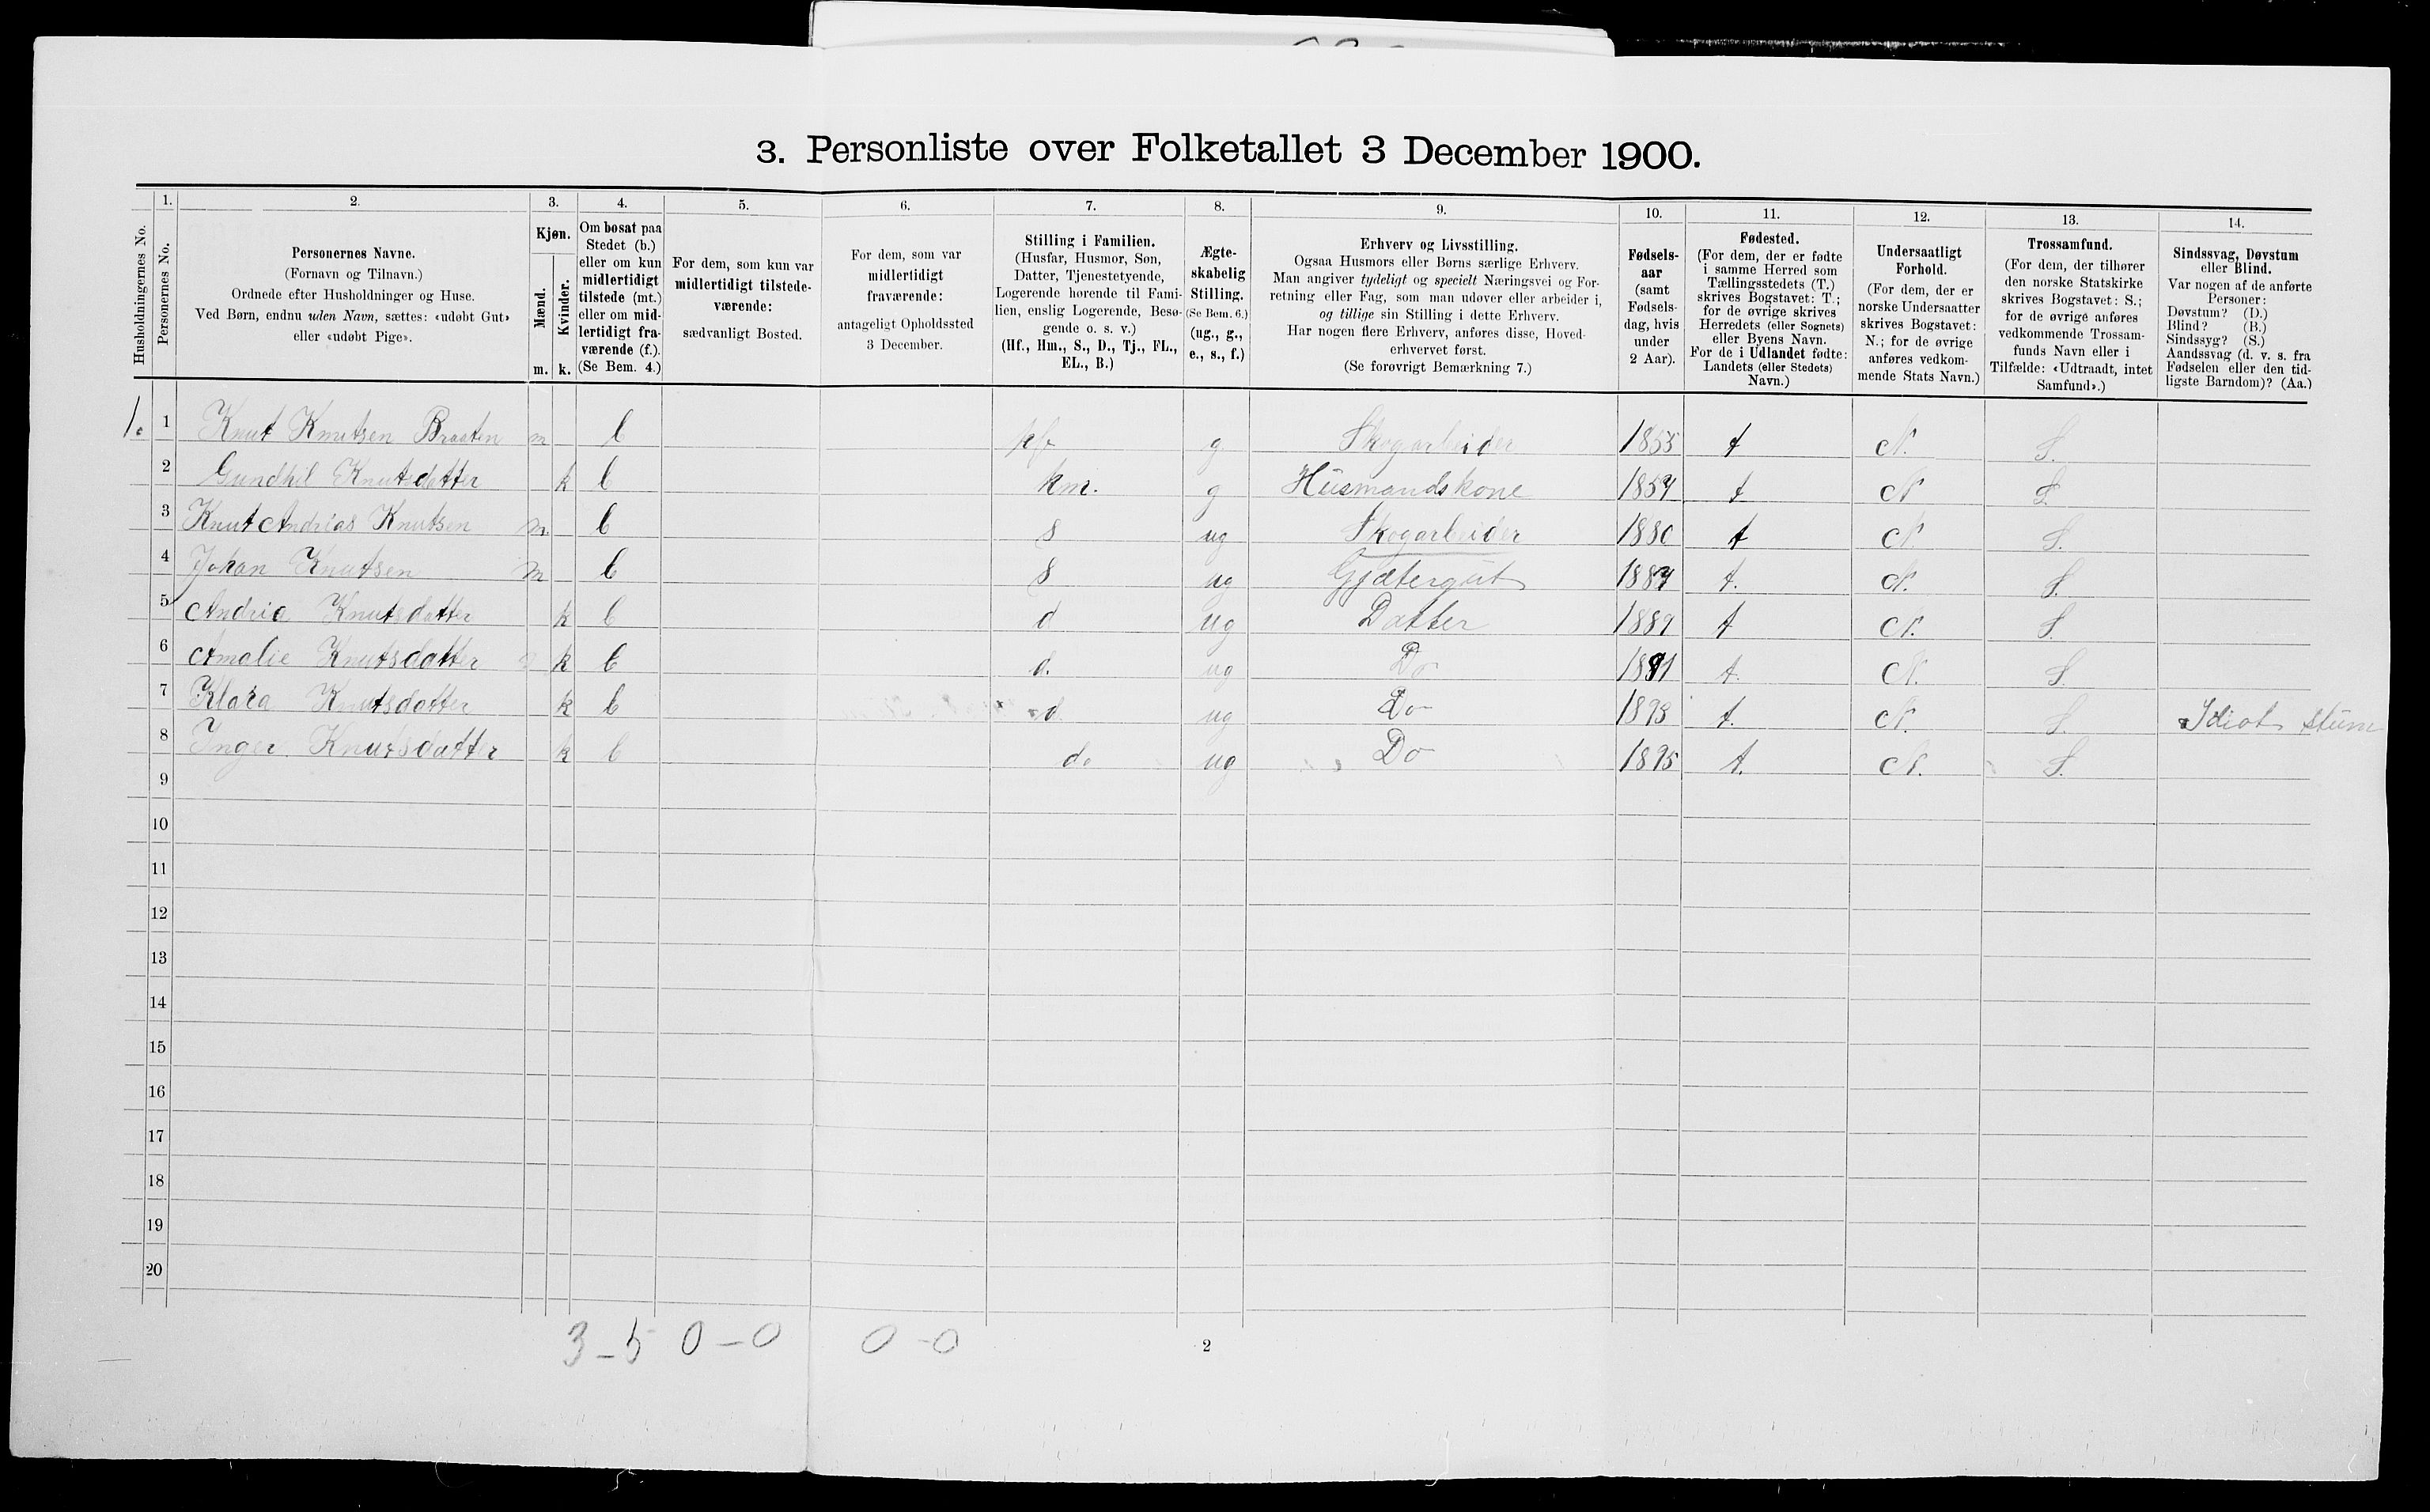 3. Personliste over Folketallet 3 December 1900.
Husholdningernes No.
1.
Personernes No.
2.
Personernes Navne.
(Fornavn og Tilnavn.)
Ordnede efter Husholdninger og Huse.
Ved Børn, endnu uden Navn, sættes: «udøbt Gut»
eller «udøbt Pige».
3.
Kjøn.
Mænd.
Kvinder.
m. k.
4.
Om bosat paa
Stedet (b.)
eller om kun
midlertidigt
tilstede (mt.)
eller om mid-
lertidigt fra-
værende (f.).
(Se Bem. 4.)
5.
For dem, som kun var
midlertidigt tilstede-
værende:
sædvanligt Bosted.
6.
For dem, som var
midlertidigt
fraværende:
antageligt Opholdssted
3 December.
7.
Stilling i Familien.
(Husfar, Husmor, Søn,
Datter, Tjenestetyende,
Logerende hørende til Fami-
lien, enslig Logerende, Besø-
gende o. s. v.)
(Hf., Hm., S., D., Tj., FL.,
EL., B.)
8.
Ægte-
skabelig
Stilling.
(Se Bem. 6.)
(ug., g.,
e., s., f.)
9.
Erhverv og Livsstilling.
Ogsaa Husmors eller Børns særlige Erhverv.
Man angiver tydeligt og specielt Næringsvei og For-
retning eller Fag, som man udøver eller arbeider i,
og tillige sin Stilling i dette Erhverv.
Har nogen flere Erhverv, anføres disse, Hoved-
erhvervet først.
(Se forøvrigt Bemærkning 7.)
10.
Fødsels-
aar
(samt
Fødsels-
dag, hvis
under
2 Aar).
11.
Fødested.
(For dem, der er fødte
i samme Herred som
Tællingsstedets (T.)
skrives Bogstavet: T.;
for de øvrige skrives
Herredets (eller Sognets)
eller Byens Navn.
For de i Udlandet fødte:
Landets (eller Stedets)
Navn.)
12.
Undersaatligt
Forhold.
(For dem, der er
norske Undersaatter
skrives Bogstavet:
N.; for de øvrige
anføres vedkom-
mende Stats Navn.)
13.
Trossamfund.
(For dem, der tilhører
den norske Statskirke
skrives Bogstavet: S.;
for de øvrige anføres
vedkommende Trossam-
funds Navn eller i
Tilfælde: «Udtraadt, intet
Samfund».)
14.
Sindssvag, Døvstum
eller Blind.
Var nogen af de anførte
Personer:
Døvstum? (D.)
Blind? (B.)
Sindssyg? (S.)
Aandssvag (d. v. s. fra
Fødselen eller den tid-
ligste Barndom)? (Aa.)
1. 1 Knut Knutsen Braaten m b hf. g Skogarbeider 1855 t N. S.
2 Gundhil Knutsdatter k b hm. g Husmandskone 1857 t N S
3 Knut Andrias Knutsen m. b s ug Skogarbeider 1880 t N. S.
4 Johan Knutsen m b s ug Gjætergut 1887 t. N. S.
5 Andria Knutsdatter k b d ug Datter 1889 t N. S.
6 Amalie Knutsdatter k b d. ug Do 1891 t. N. S.
7 Klara Knutsdatter k b d ug Do 1893 t. N. S. Idiot stum
8 Inger Knutsdatter k b d. ug Do 1895 t. N. S.
9
10
11
12
13
14
15
16
17
18
19
20
3-5 0-0 0-0
2